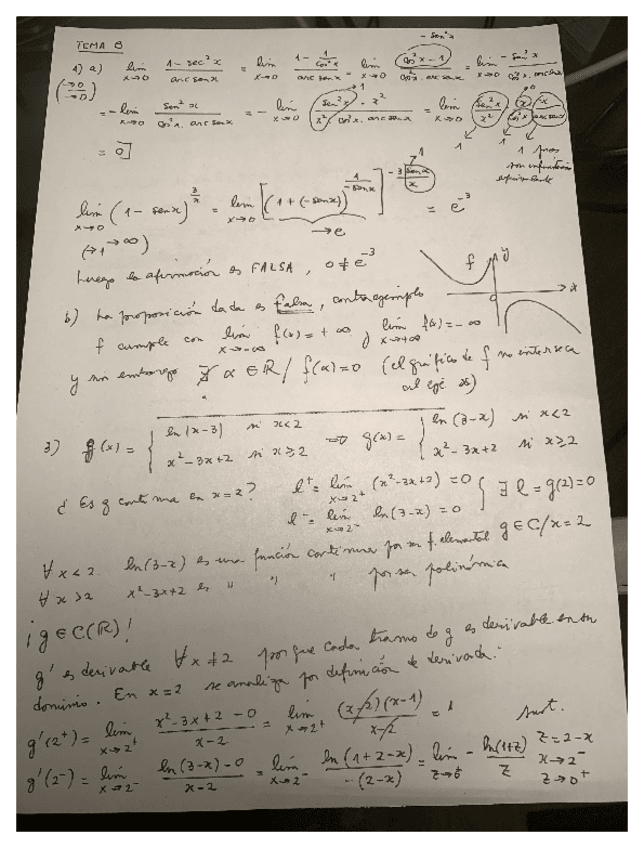 TEMA B
- sen²x
1) a) lim x→0 (1 - sec²x)/(arc sen x) = lim x→0 (1 - 1/cos²x)/(arc sen x) = lim x→0 (cos²x - 1)/(cos²x · arc sen x) = lim x→0 (- sen²x)/(cos²x · arc sen x)
(→0/→0)
= - lim x→0 (sen²x)/(cos²x · arc sen x) = - lim x→0 (sen²x/x² · x²)/(cos²x · arc sen x) = lim x→0 (sen²x/x²) (x/cos²x) (x/arc sen x)
= 0 1 1 1 pues
son infinitésimos
equivalentes
lim x→0 (1 - sen x)^(3/x) = lim x→0 [(1 + (-sen x))^(1/-sen x)]^(-3 sen x/x) = e^-3
(→1^→∞) →e
Luego la afirmación es FALSA, 0 ≠ e^-3
b) La proposición dada es falsa, contraejemplo f y x 0
f cumple con lim x→-∞ f(x) = +∞ y lim x→+∞ f(x) = -∞
y sin embargo ∄ α ∈ ℝ / f(α) = 0 (el gráfico de f no interseca
al eje x)
3) g(x) = { ln |x-3| si x<2 ⇒ g(x) = { ln (3-x) si x<2
x² - 3x + 2 si x≥2 x² - 3x + 2 si x≥2
¿Es g continua en x=2? l⁺ = lim x→2⁺ (x²-3x+2) = 0 } ∃ l = g(2) = 0
l⁻ = lim x→2⁻ ln(3-x) = 0 g ∈ C/x=2
∀ x<2 ln(3-x) es una función continua por ser f. elemental
∀ x>2 x²-3x+2 es " " " por ser polinómica
¡g ∈ C(ℝ)!
g' es derivable ∀ x ≠ 2 porque cada tramo de g es derivable en su
dominio. En x=2 se analiza por definición de derivada:
g'(2⁺) = lim x→2⁺ (x²-3x+2-0)/(x-2) = lim x→2⁺ ((x-2)(x-1))/(x-2) = 1 sust.
g'(2⁻) = lim x→2⁻ (ln(3-x)-0)/(x-2) = lim x→2⁻ (ln(1+2-x))/(-(2-x)) = lim z→0⁺ - ln(1+z)/z z=2-x
x→2⁻
z→0⁺